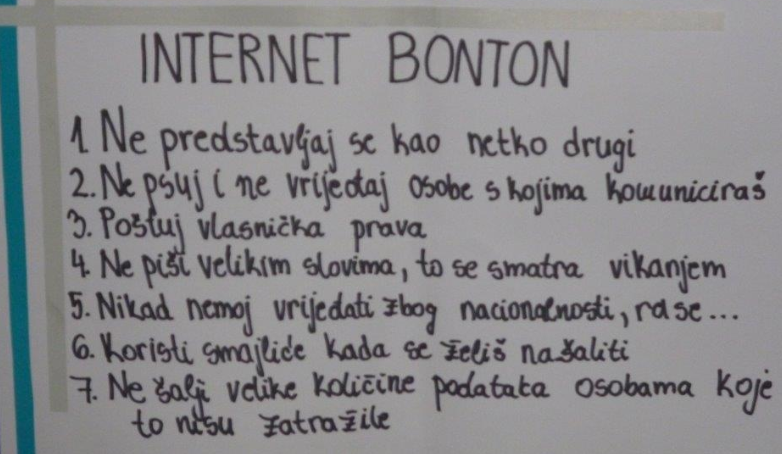 INTERNET BONTON
1 Ne predstavljaj se kao netko drugi
2. Ne psuj i ne vrijeđaj osobe s kojima komuniciraš
3. Poštuj vlasnička prava
4. Ne piši velikim slovima, to se smatra vikanjem
5. Nikad nemoj vrijeđati zbog nacionalnosti, rase...
6. Koristi smajliće kada se želiš našaliti
7. Ne šalji velike količine podataka osobama koje
to nisu zatražile